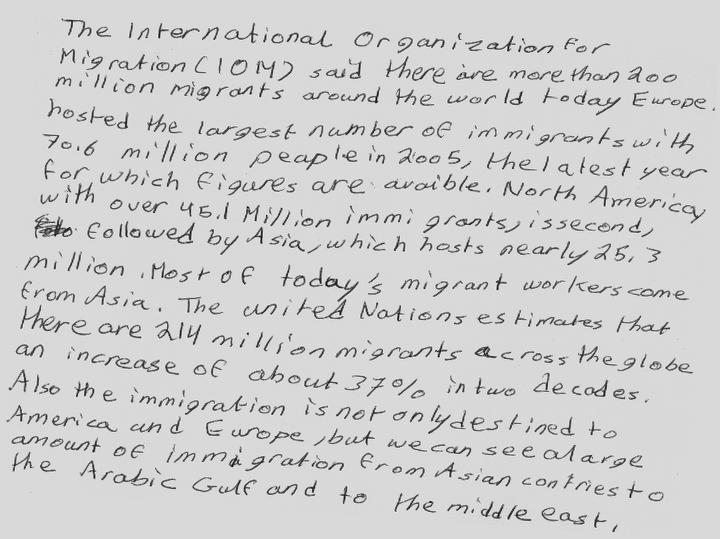 The International Organization for
Migration (IOM) said there are more than 200
million migrants around the world today Europe.
hosted the largest number of immigrants with
70.6 million peaple in 2005, the latest year
for which figures are avaible. North America,
with over 45.1 Million immigrants, is second,
followed by Asia, which hosts nearly 25.3
million. Most of today's migrant workers come
from Asia. The united Nations estimates that
there are 214 million migrants across the globe
an increase of about 37% in two decades.
Also the immigration is not only destined to
America and Europe, but we can see a large
amount of immigration from Asian contries to
the Arabic Gulf and to the middle east.